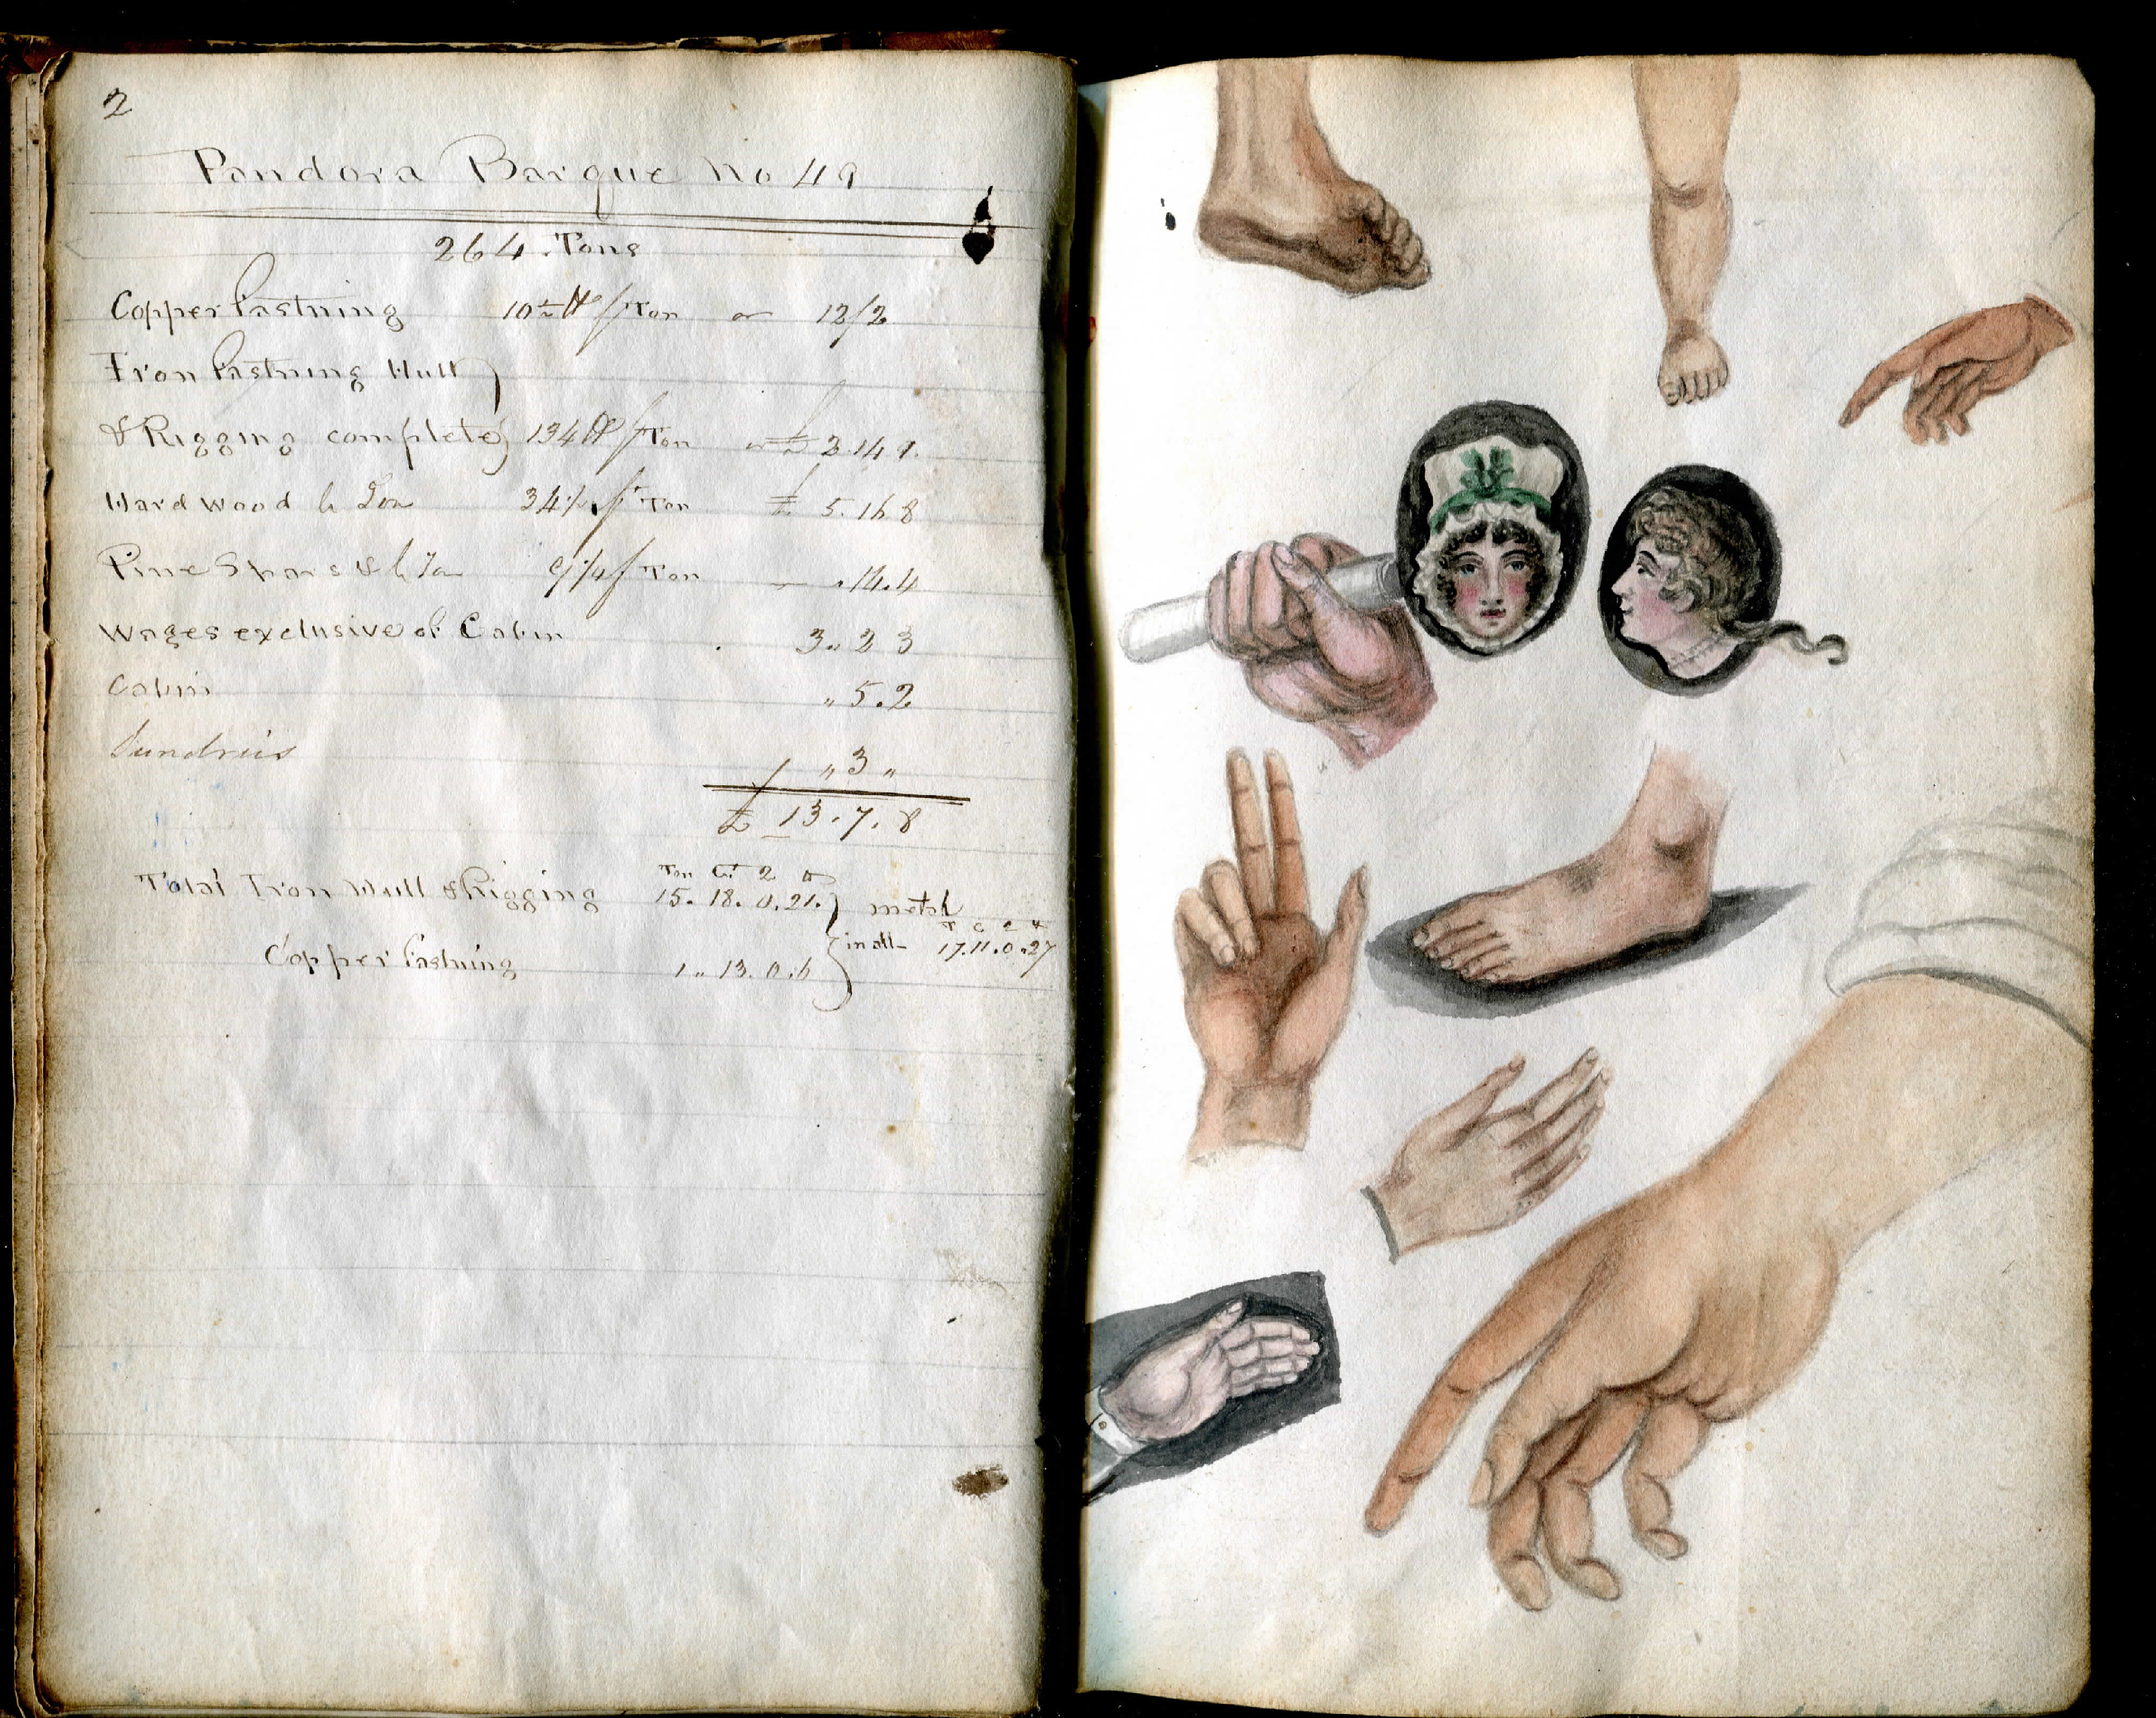 2
Pandora Barque No 49
264 Tons
Copper fastning 10 lb p Ton or 12/2
Iron fastning Hull
& Rigging complete 134 lb p Ton or £ 3.14 9.
Hard wood 34 p Ton £ 5.16 8
Pine Spars & 9¼ p Ton .14.4
Wages exclusive of Cabin 3 " 2 3
Cabin " 5.2
Sundries " 3 "
£ 13.7.8
Total Iron Hull & Rigging Ton Ct 2 lb 15. 18. 0. 21. metal
Copper fastning 1 " 13. 0. 6 in all T C 2 lb 17.11.0.27